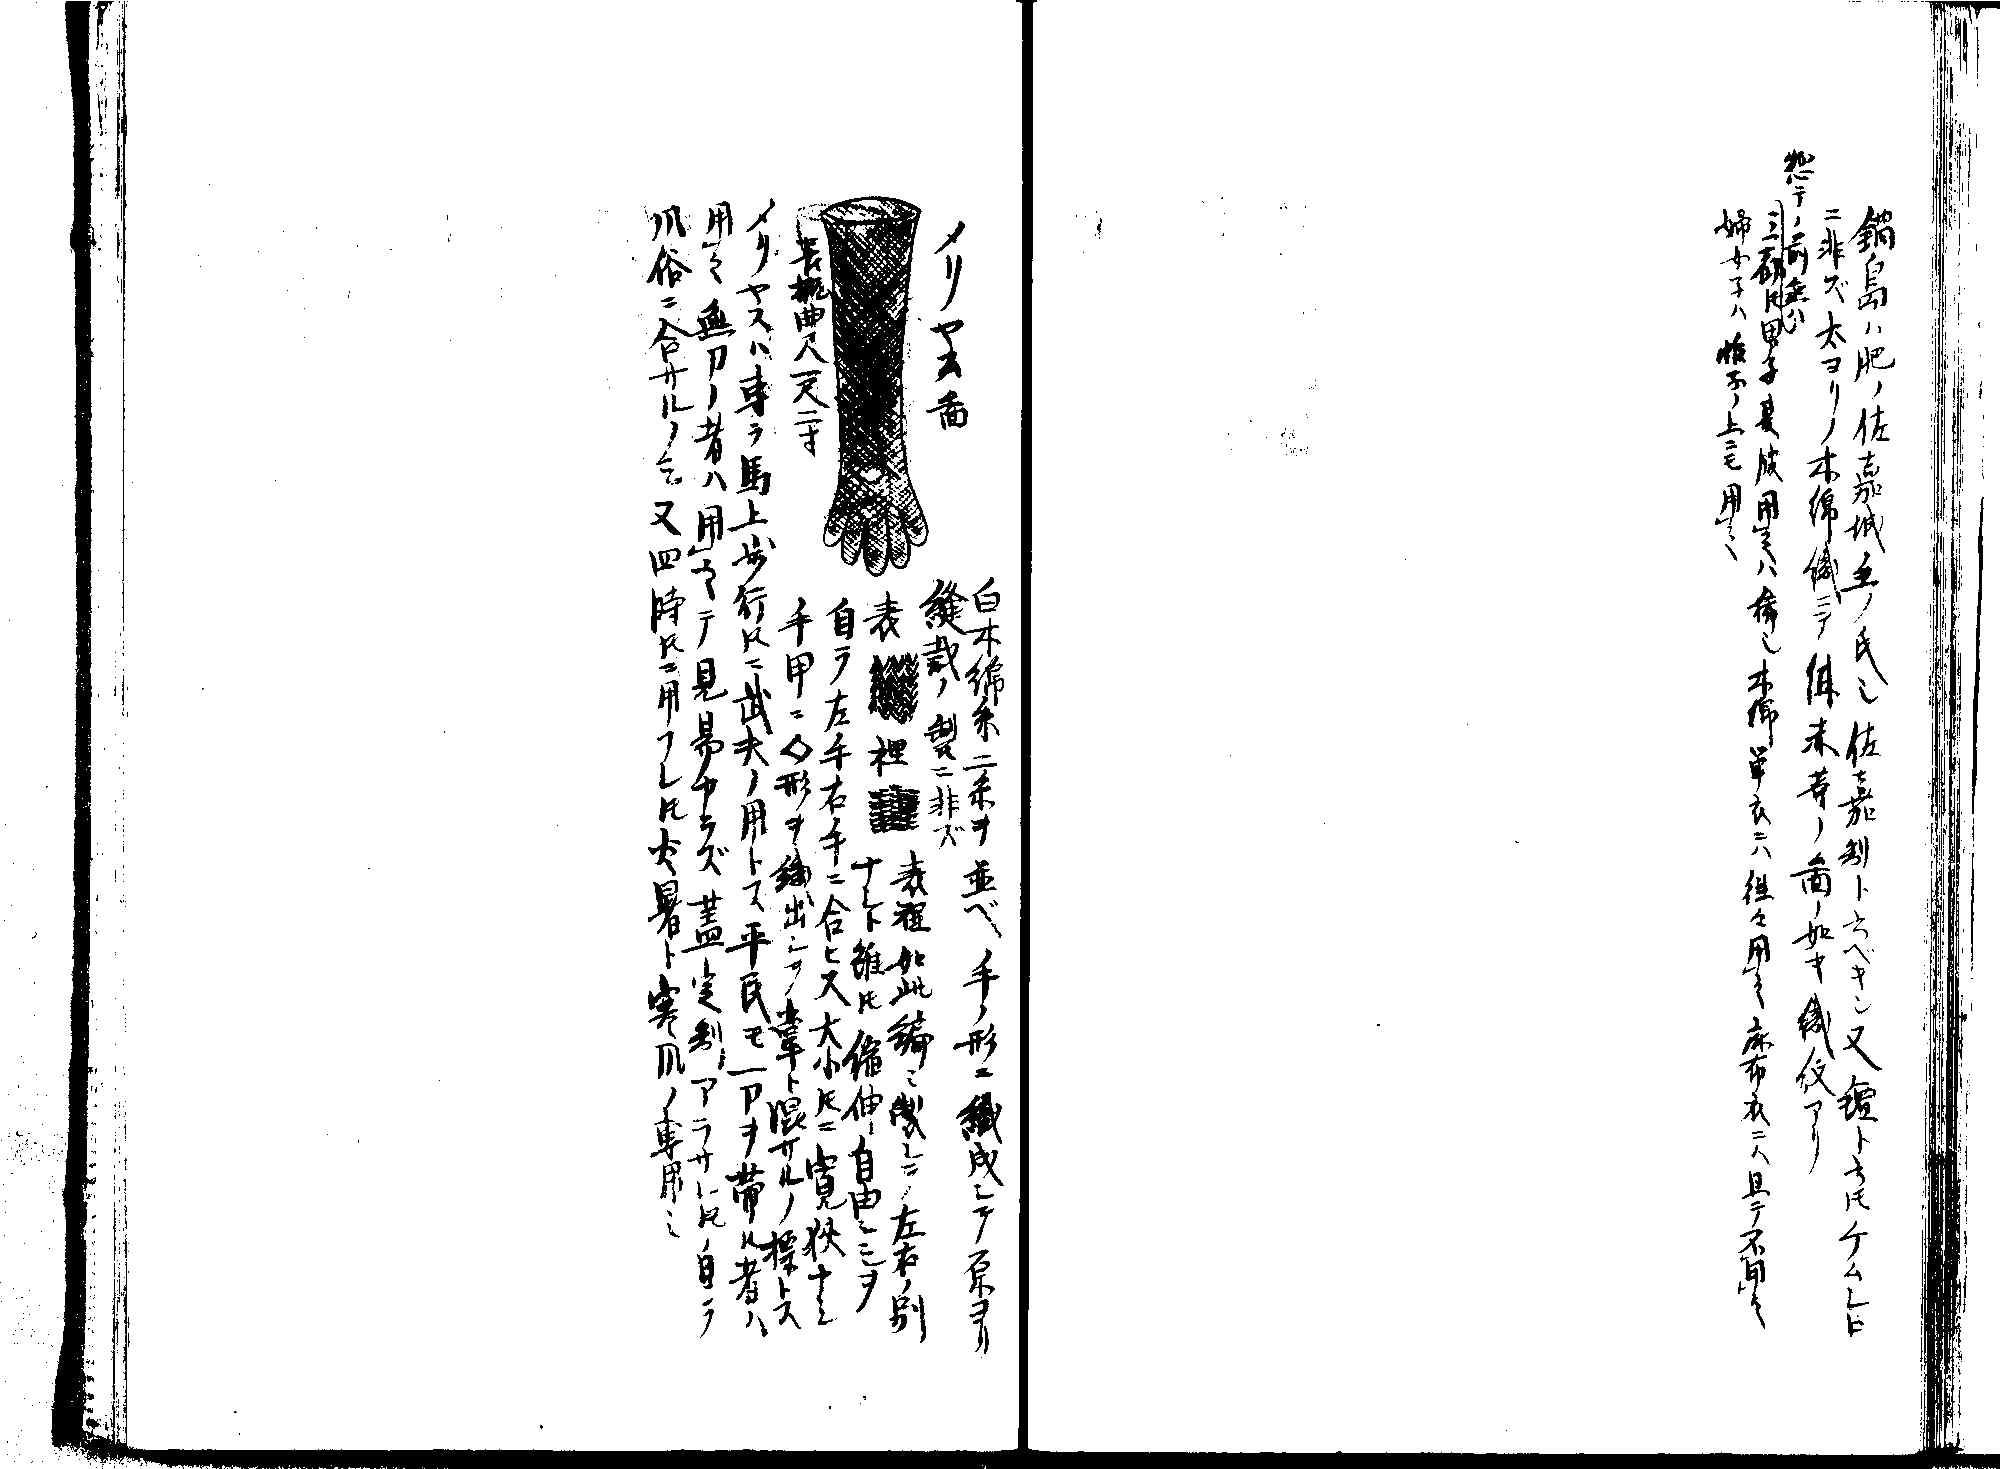 鍋島ハ肥ノ佐嘉城主ノ氏也佐嘉制ト云ベキ也又鐙ト云圧ケムシ
ニ非ズ太ヨリノ木綿織ニテ 等ノ圖ノ如キ織佼アリ
惣テノ前垂ハ
三都圧男子夏腹用之ハ稀也木綿単衣ニハ往々用之麻布衣ニハ且テ不用之
婦女子ハ帷子ノ上ニモ用之
メリヤス圖
長概曲尺一尺二寸
白木綿糸二糸ヲ並ベ手ノ形ニ織成シテ原ヨリ
縫裁ノ製ニ非ズ
表 裡 表裡如此編ミ製レニノ左右ノ別
ナシト雖圧縮伸自由ミミヲ
自ラ左手右手ニ合ヒ又大小圧ニ寛狭ナシ
手甲ニ◇形ヲ織出シテ韋ト混ザルノ標トス
メリヤスハ専ラ馬上歩行圧ニ武夫ノ用トス平民モ一刀ヲ帯ル者ハ
用之無刀ノ者ハ用之テ見易カラズ蓋定制アラザレ圧自ラ
風俗ニ合ザルノ云又四時圧ニ用フレ圧大暑ト寒風ノ専用ミ